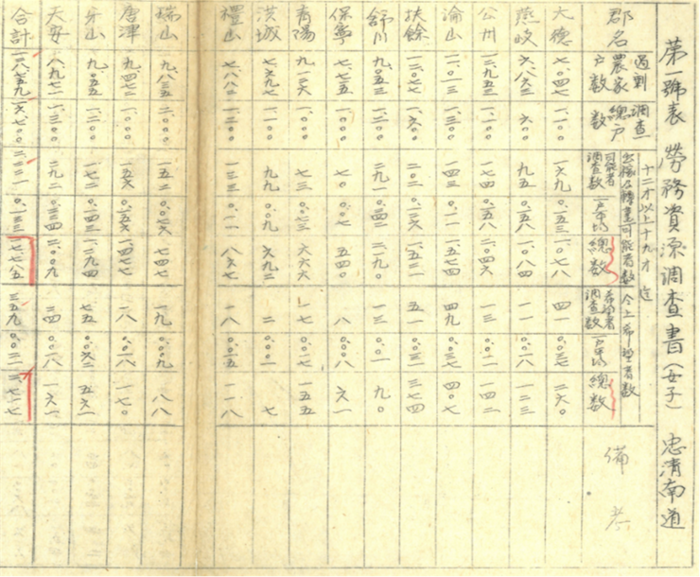 第一號表 勞務資源調査書(女子) 忠清南道
十二才以上十九才迄
郡名 過剰農家戸数 調査總戸数 出稼及轉業可能者数 可能者調査数 一戸平均 總数 今上希望者数 希望者調査数 一戸平均 總数 備考
大徳 七〇四七 一一〇〇 一六九 〇.一五三 一〇七八 四一 〇.〇三七 二六〇
燕岐 六〇〇 九五 〇.一五八 一〇八四 一一 〇.〇一八 一二三
公州 一三〇〇 一七四 〇.一五八 二〇四六 一三 一四二
論山 一一〇一三 一三〇〇 一四三 四九 〇.〇三七 四〇七
扶餘 一二〇七七 一六〇〇 一五三一 五一 三七四
舒川 九〇五三 一二〇〇 二九一 〇.二四二 二一九〇 一三 〇.〇一 九〇
保寧 一〇〇〇 七〇 五四〇 八 六一
青陽 九一一六 一〇〇〇 七三 〇.〇七三 六六六 一七 〇.〇一七 一五五
洪城 七六九七 一一〇〇 九九 〇.〇九 六九二 七
禮山 七八八二 一二〇〇 一三三 〇.一一一 八六七 一八 〇.〇一五 一一八
瑞山 九八三五 二〇〇〇 一五二 〇.〇七六 七四七 一九 〇.〇〇九 八八
唐津 九四七二 一〇〇〇 一五六 〇.一五六 一四七七 一八 〇.〇一八 一七〇
牙山 九〇五五 一二〇〇 一七二 〇.一四三 一二九四 七五 〇.〇六二 五六一
天安 八九七二 一三〇〇 二九二 二〇〇九 三四 〇.〇一八 一六一
合計 一六七〇〇 〇.一三三 一七七八五 三五九 〇.〇二一